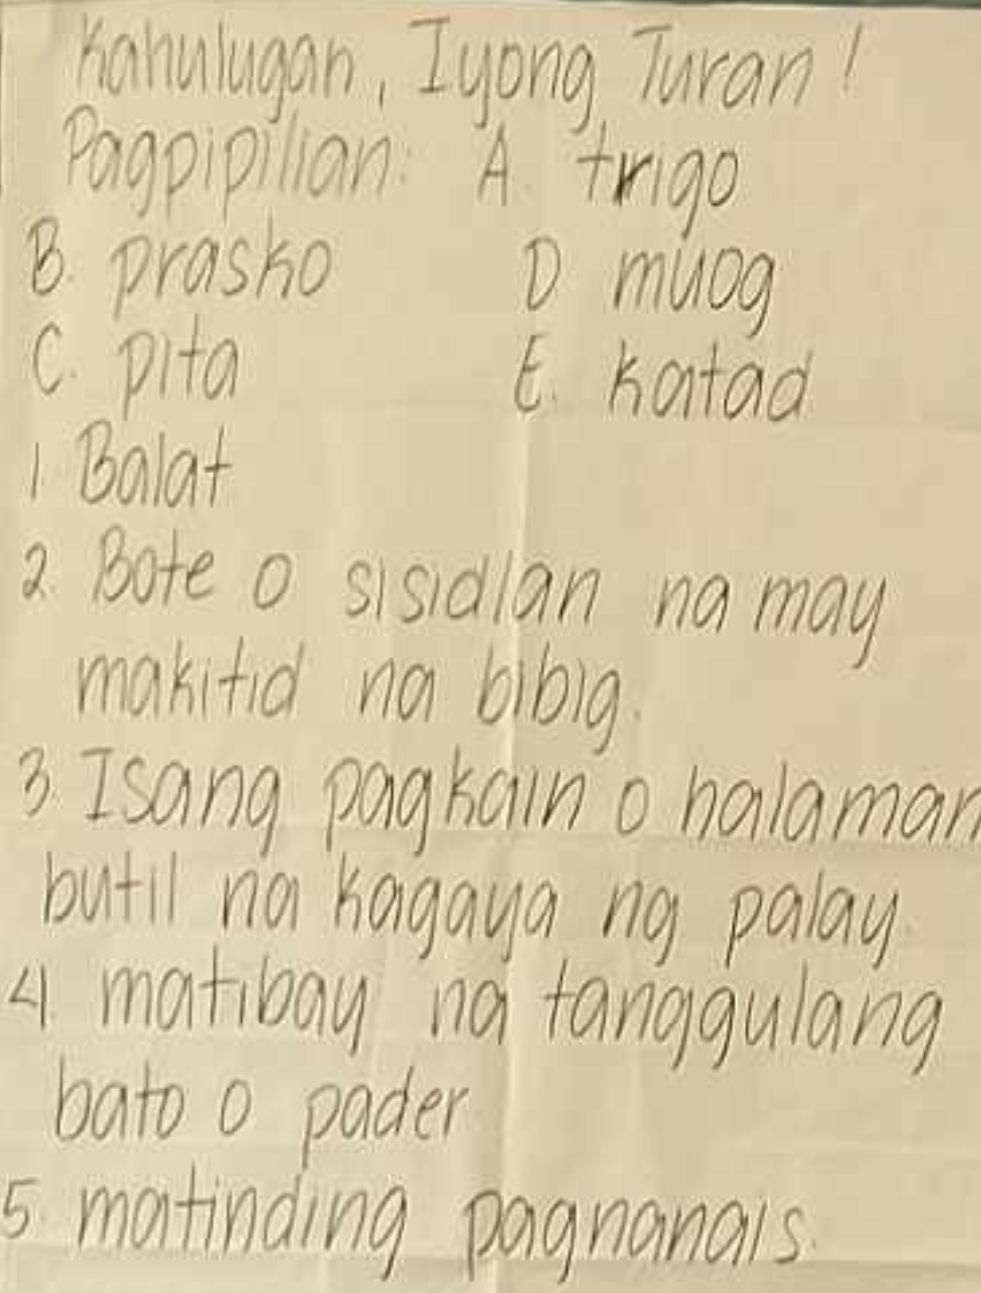 Kahulugan, Iyong Turan!
Pagpipilian: A. trigo
B. prasko D muog
C. pita E. katad
1 Balat
2. Bote o sisidlan na may
makitid na bibig.
3. Isang pagkain o halaman
butil na kagaya ng palay.
4. matibay na tanggulang
bato o pader
5. matinding pagnanais.